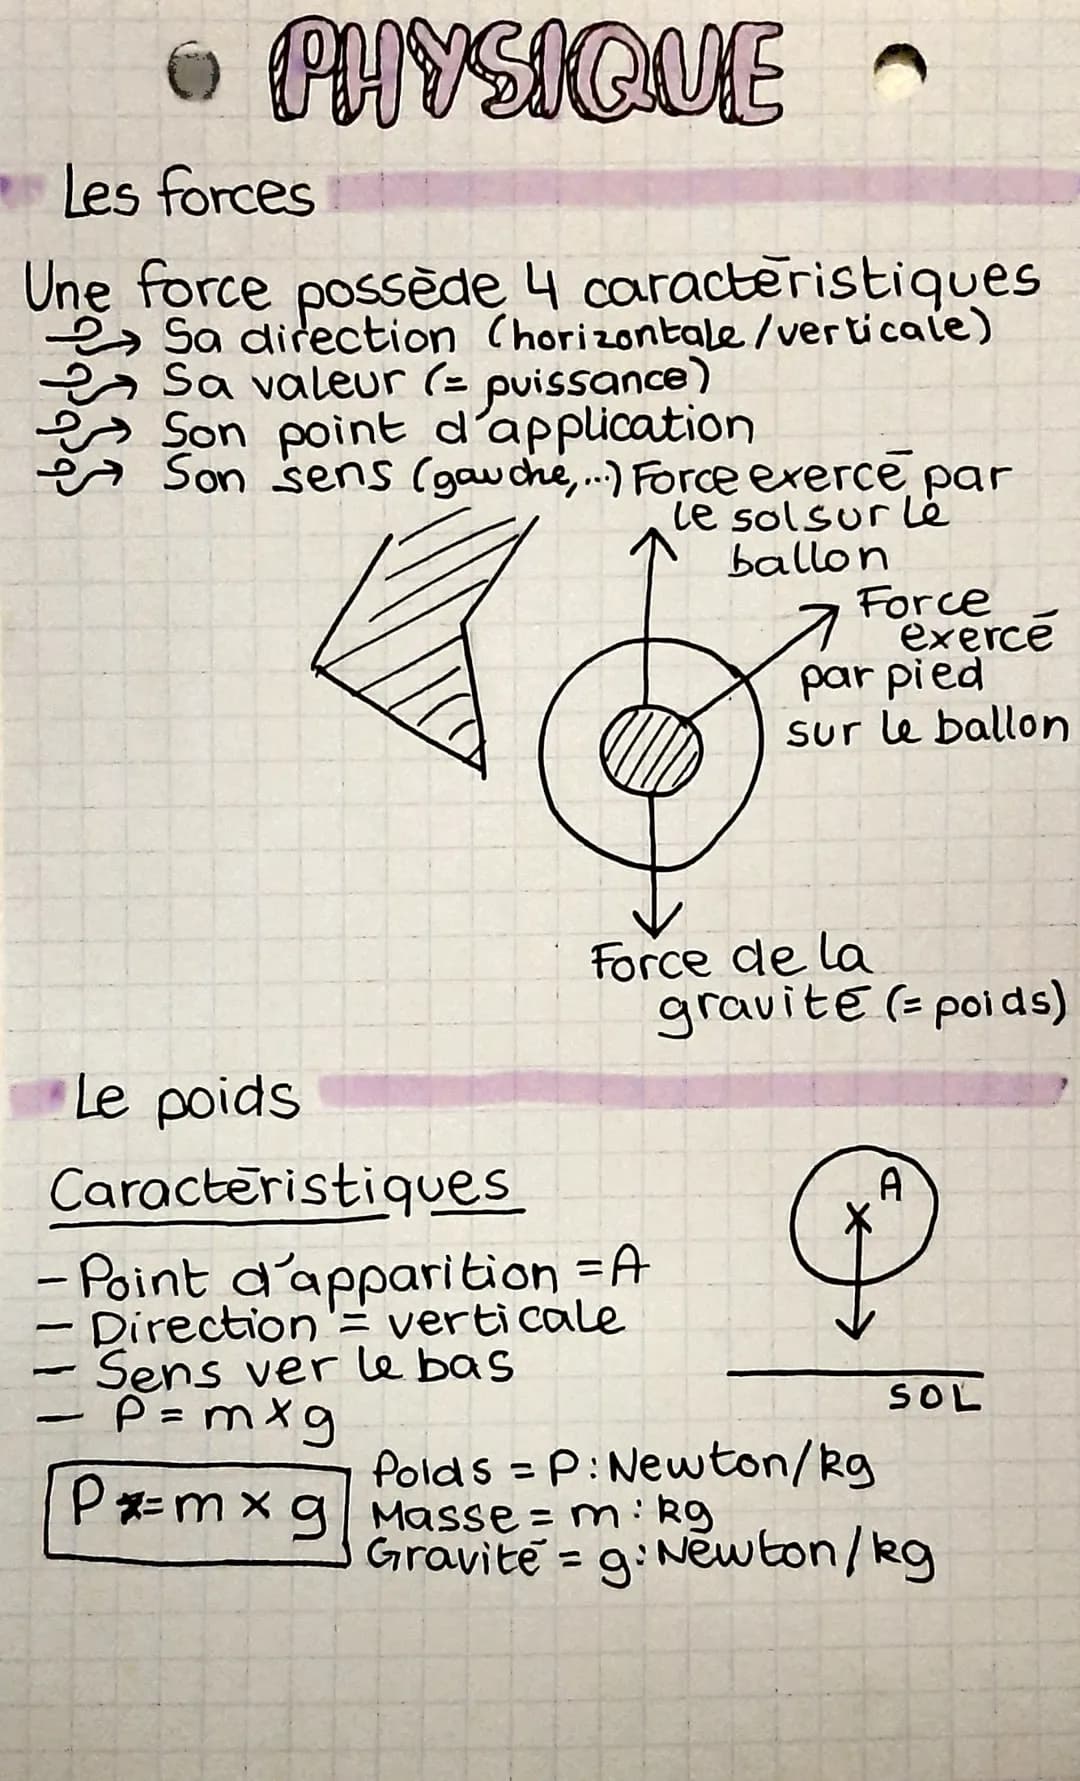 PHYSIQUE
Les forces
Une force possède 4 caractéristiques
Sa direction (horizontale/verticale)
Sa valeur (= puissance)
Son point d'application
Son sens (gauche,...)
Force exercé par
le sol sur le
ballon
Force
exercé
par pied
sur le ballon
Force de la
gravité (= poids)
Le poids
Caractéristiques
- Point d'apparition = A
- Direction = verticale
- Sens ver le bas
- P = m x g
A
SOL
P = m x g
Poids = P : Newton/kg
Masse = m : kg
Gravité = g : Newton/kg